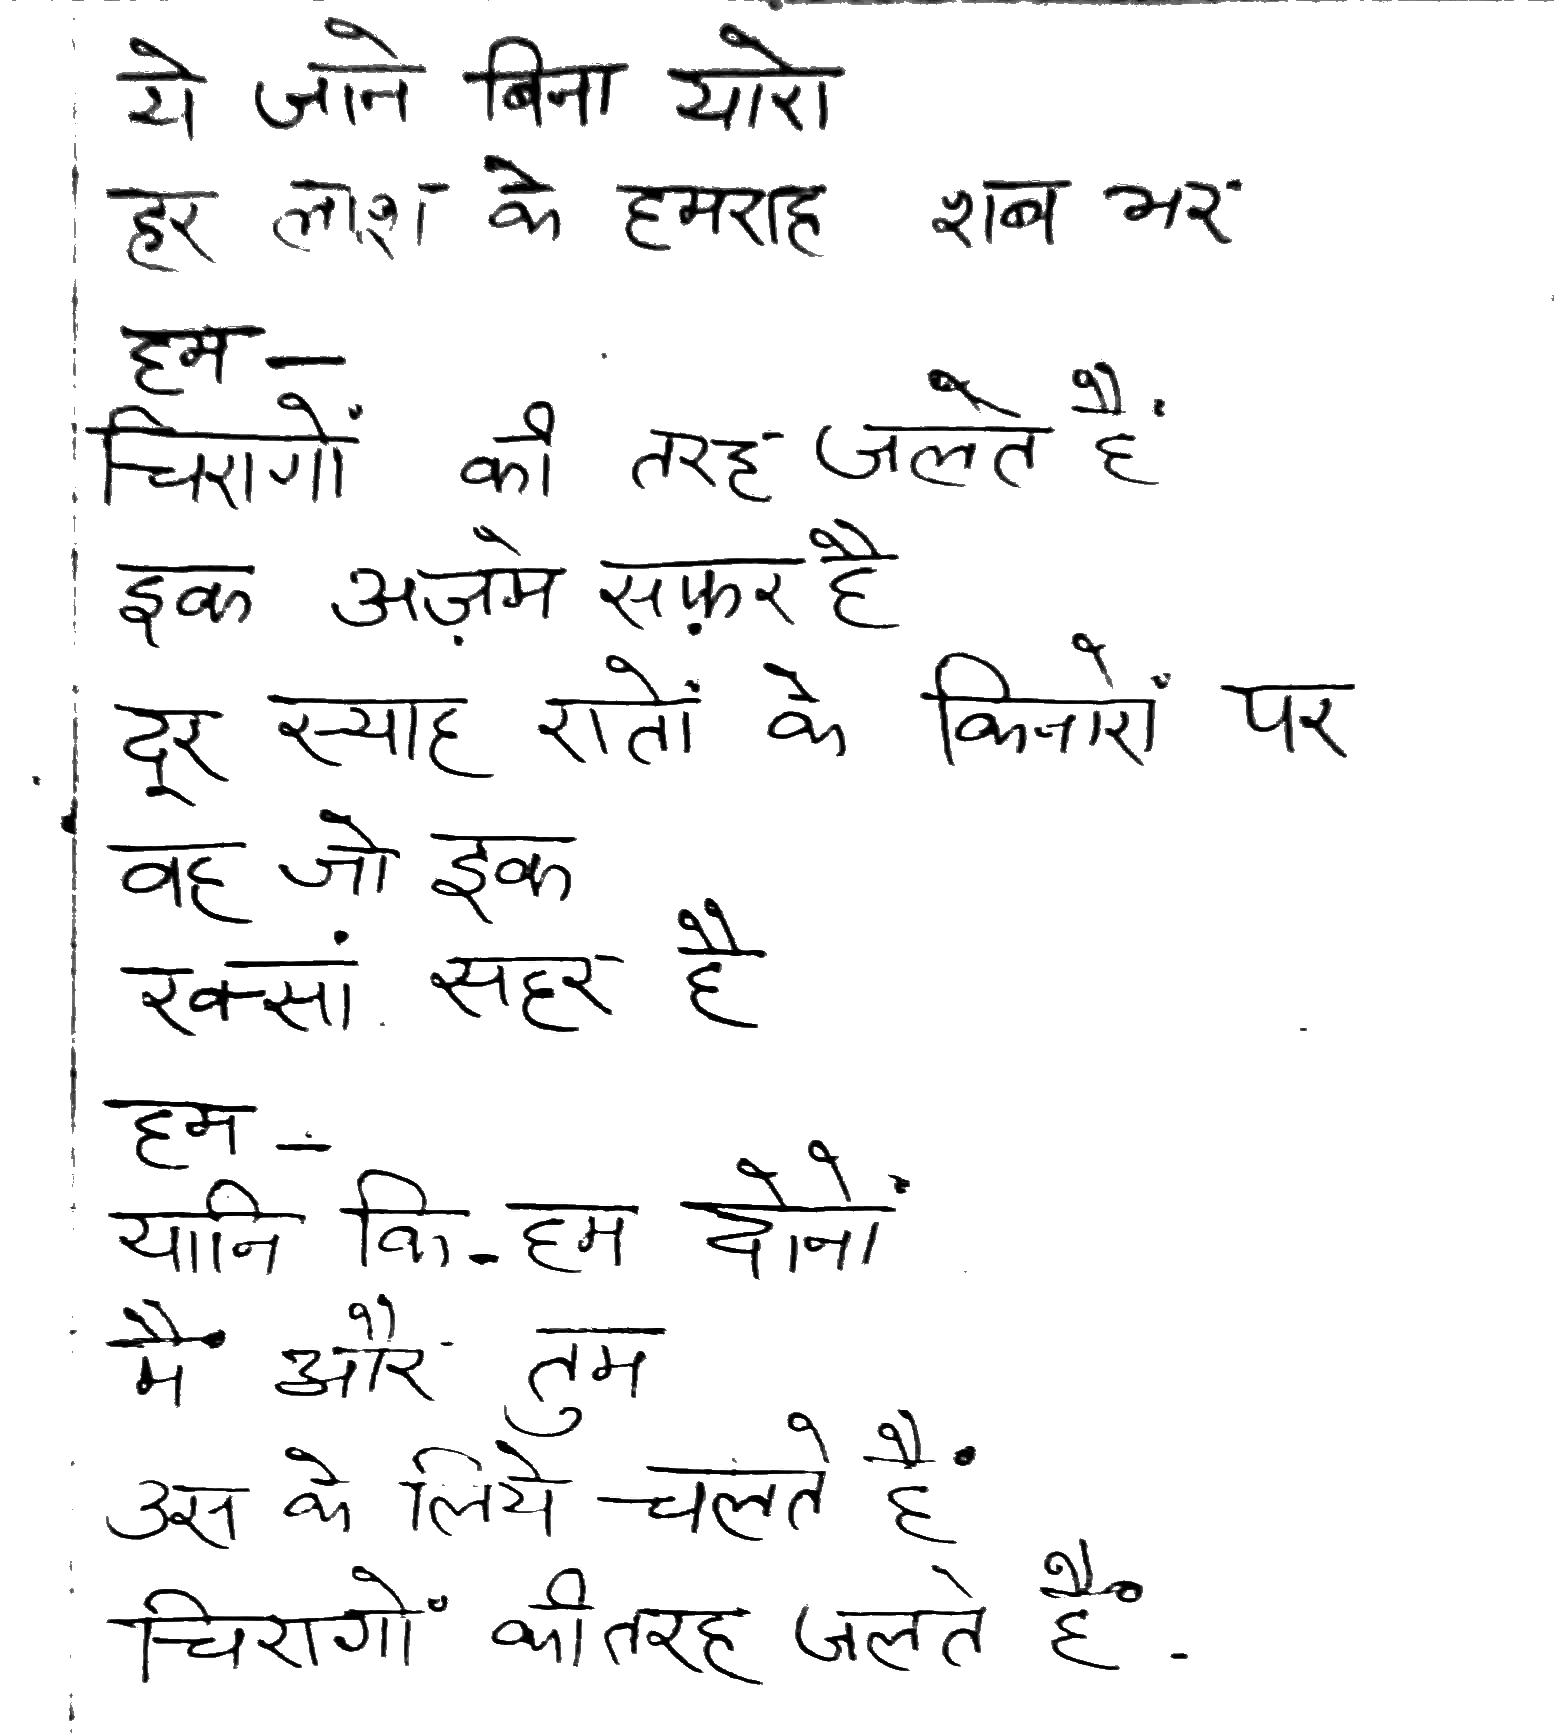 ये जाने बिना यारो
हर लाश के हमराह शब भर
हम —
चिरागों की तरह जलते हैं
इक अज़मे सफ़र है
दूर स्याह रातों के किनारों पर
वह जो इक
रक्सां सहर है
हम —
यानि कि - हम दोनों
मैं और तुम
उस के लिये चलते हैं
चिरागों की तरह जलते हैं -